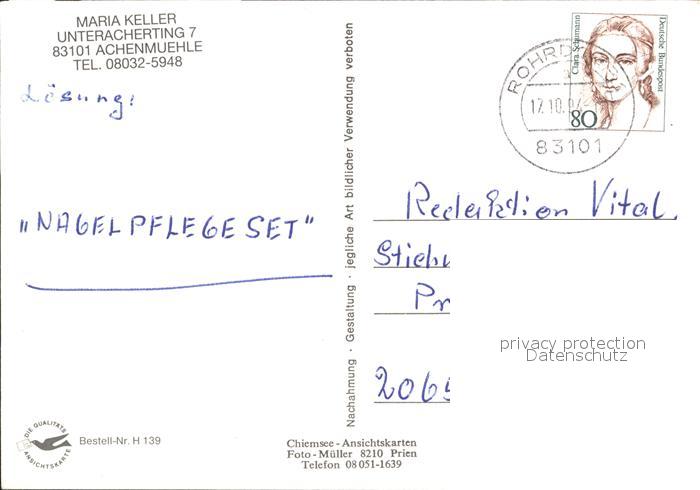 MARIA KELLER
UNTERACHERTING 7
83101 ACHENMUEHLE
TEL. 08032-5948
Lösung:
"NAGELPFLEGESET"
DIE QUALITÄTS
ANSICHTSKARTE
Bestell-Nr. H 139
Nachahmung · Gestaltung · jegliche Art bildlicher Verwendung verboten
Chiemsee-Ansichtskarten
Foto-Müller 8210 Prien
Telefon 08051-1639
Deutsche Bundespost
Clara Schumann
80
ROHRD
17.10.94
83101
Redaktion Vital,
Stichw
Pr
2065
privacy protection
Datenschutz